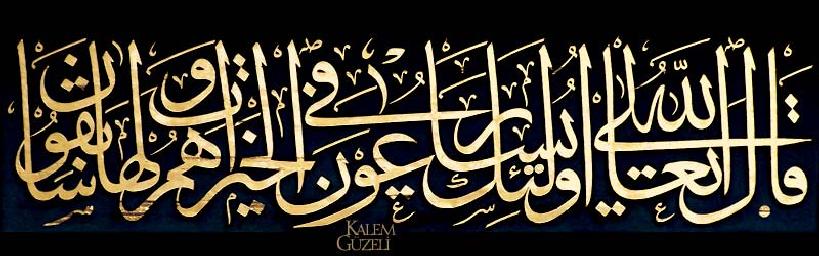 قال الله تعالى اولئك يسارعون فى الخيرات وهم لها سابقون
KALEM
GÜZELİ